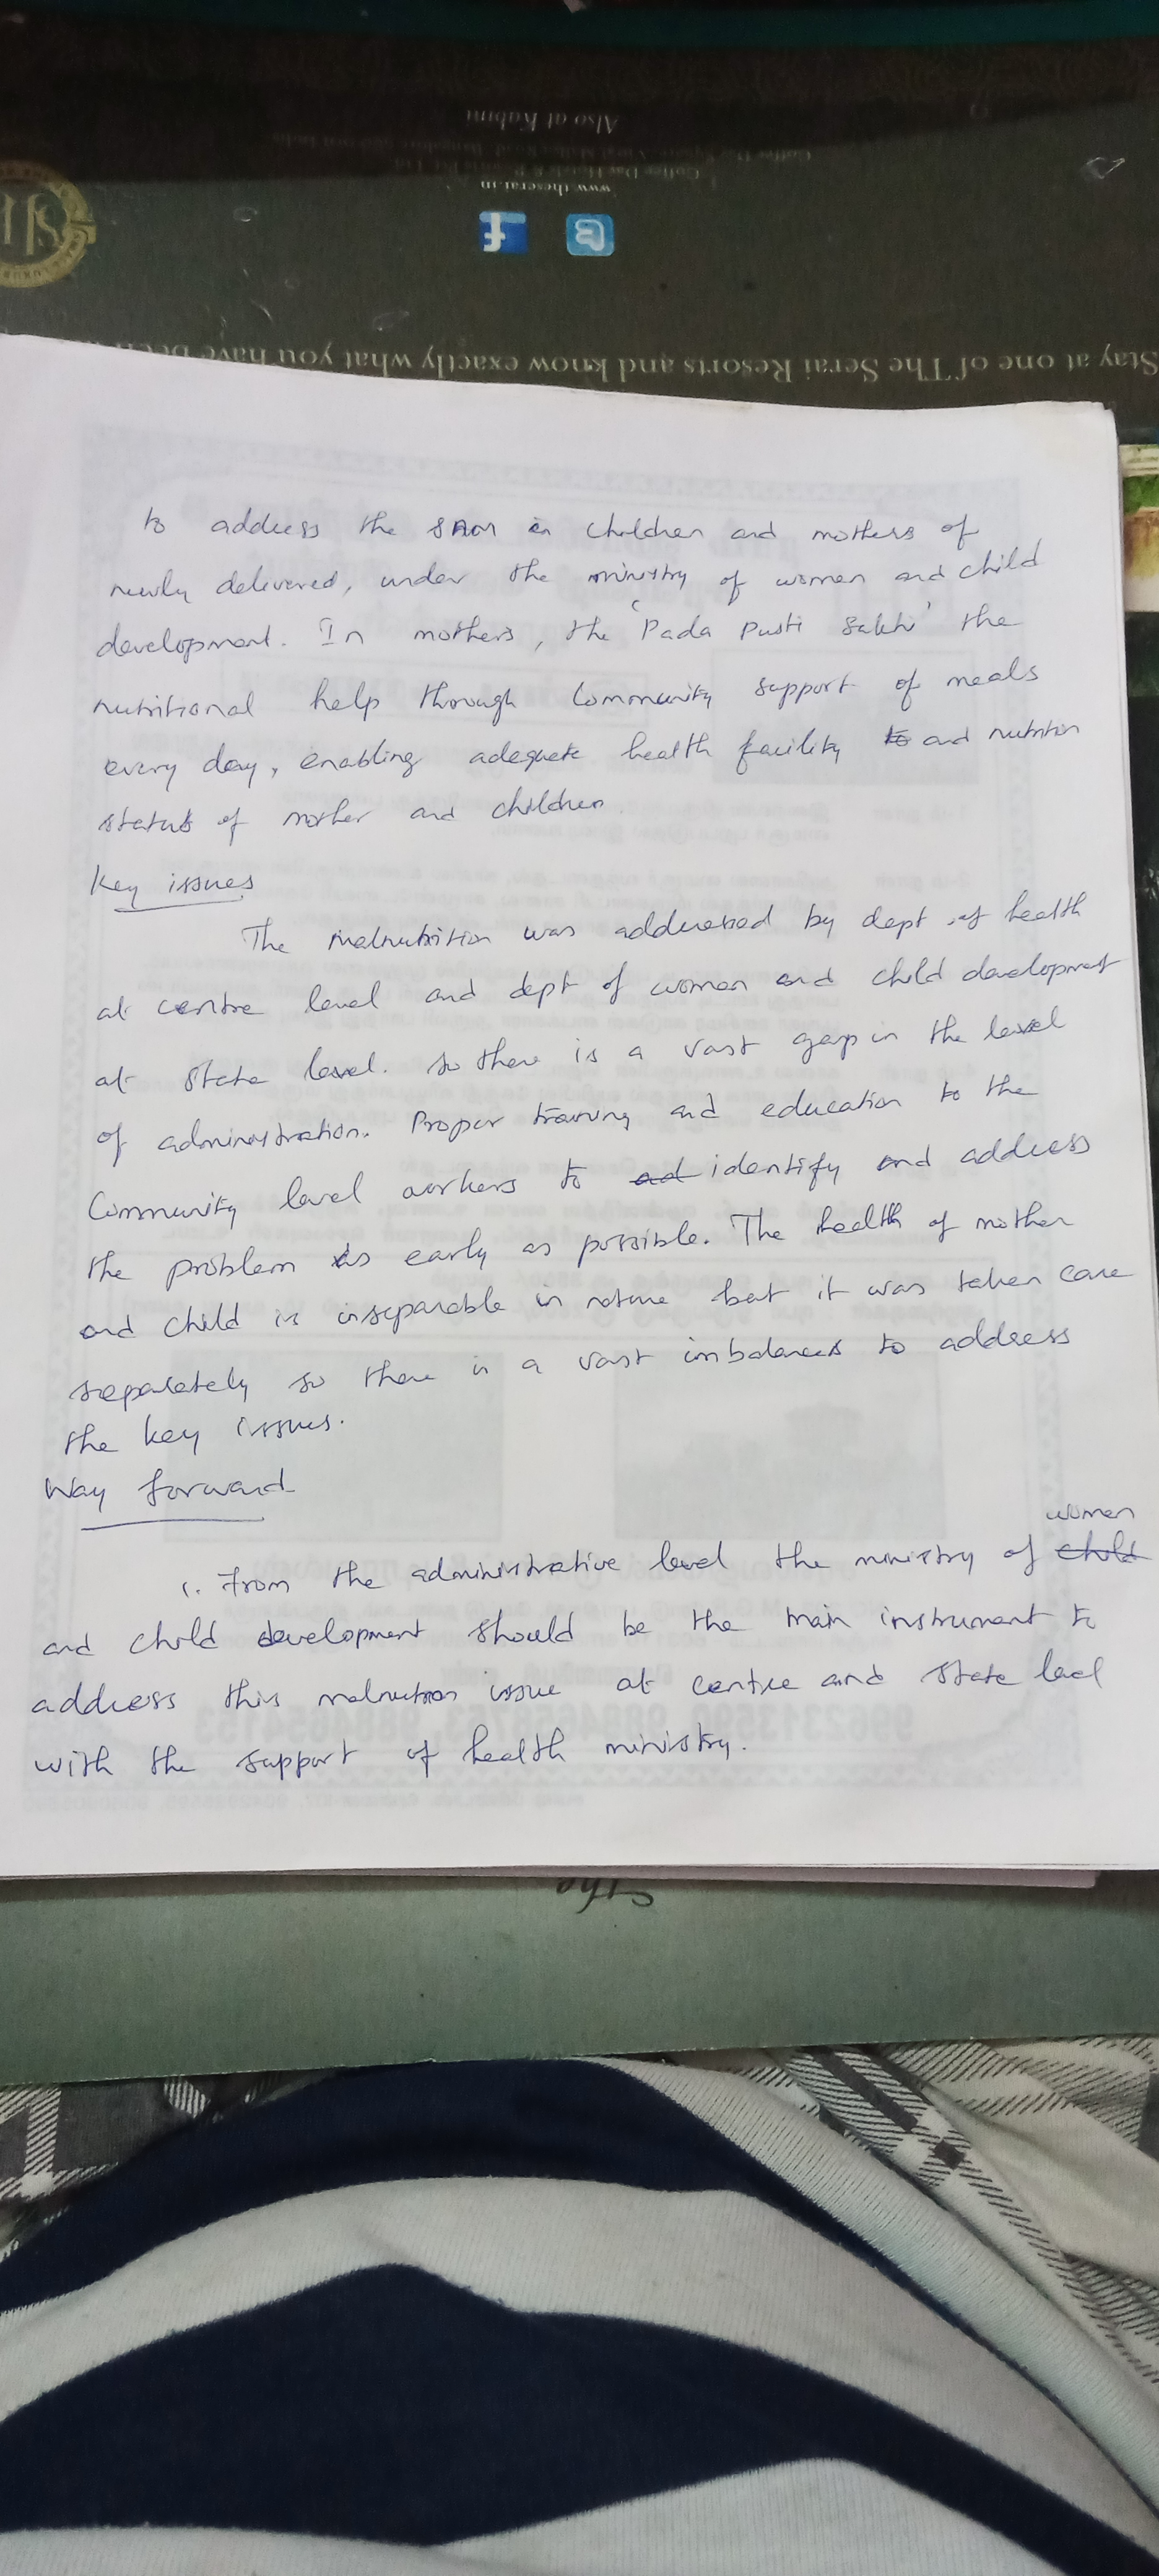 Also at Kabini
www.theserai.in
Stay at one of The Serai Resorts and know exactly what you have been
to address the SAM in children and mothers of
newly delivered, under the ministry of women and child
development. In mothers, the 'Pada Pusti Sakhi' the
nutritional help through Community support of meals
every day, enabling adequate health facility to and nutrition
status of mother and children.
Key issues
The malnutrition was addressed by dept of health
at centre level and dept of women and child development
at state level. so there is a vast gap in the level
of administration. Proper training and education to the
Community level workers to ad identify and address
the problem as early as possible. The health of mother
and child is inseparable in nature but it was taken care
separately so there is a vast imbalances to address
the key issues.
Way forward
women
1. From the administrative level the ministry of child
and child development should be the main instrument to
address this malnutrion issue at centre and state level
with the support of health ministry.
The